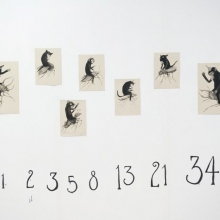 1 2 3 5 8 13 21 34